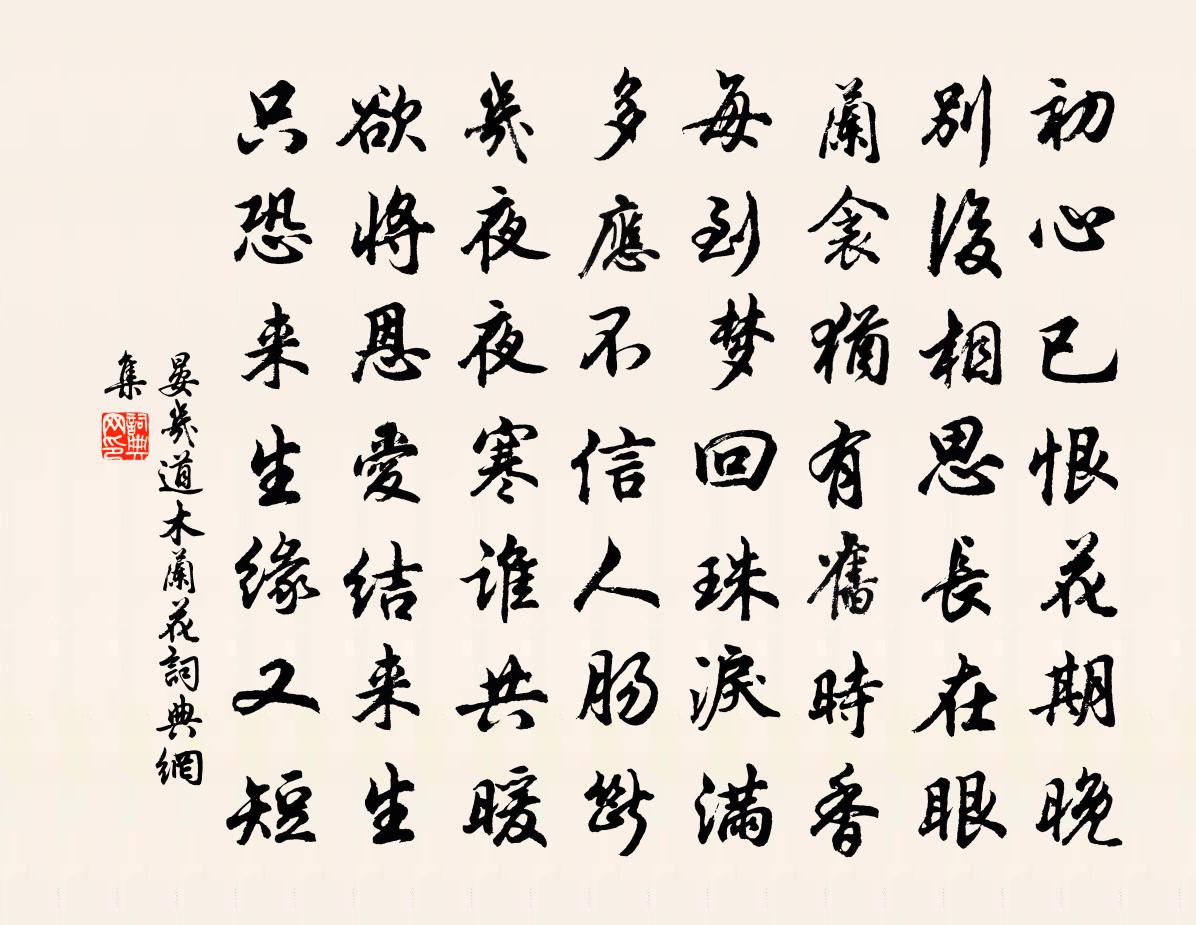 初心已恨花期晚
別後相思長在眼
蘭衾猶有舊時香
每到梦回珠淚滿
多應不信人肠斷
幾夜夜寒谁共暖
欲将恩愛结来生
只恐来生缘又短
晏幾道木蘭花詞典網
集
詞典
网印